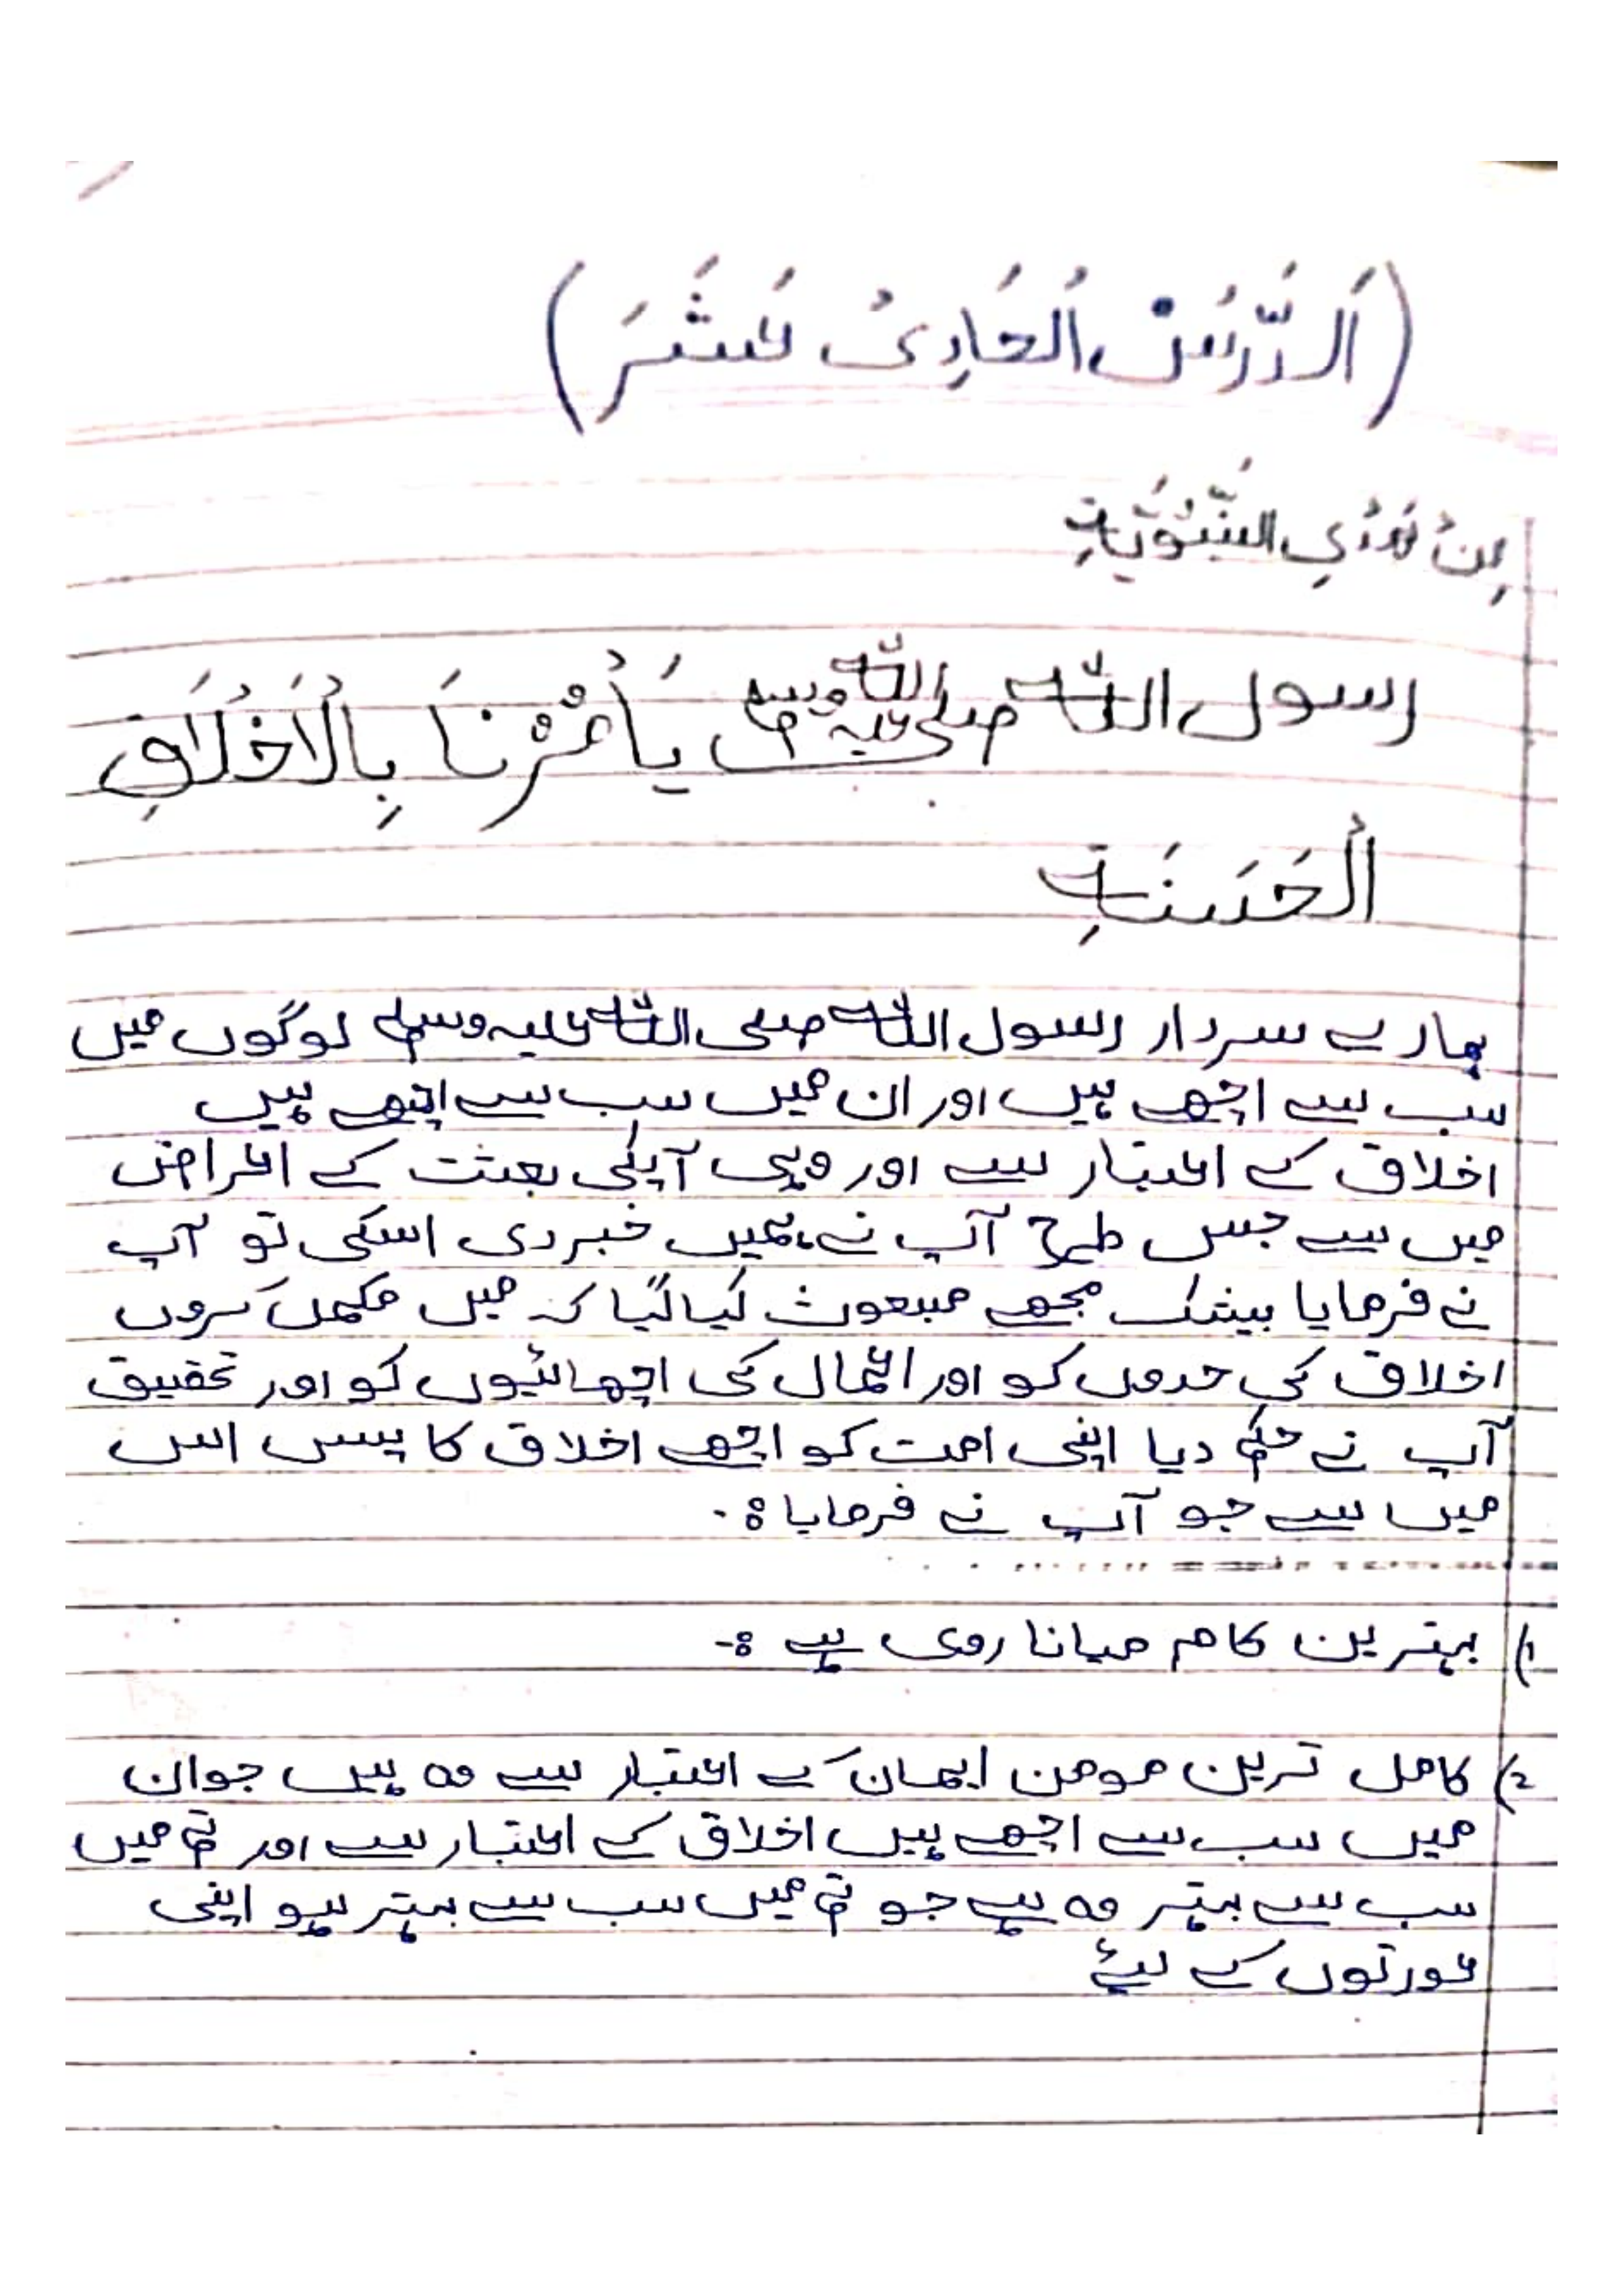 (اَلدَّرْسُ الْحَادِیْ عَشَرَ)
مِنْ هَدْیِ النَّبُوَّیَةِ
رسول اللہ صلی اللہ علیہ وسلم یَأْمُرُنَا بِالْاَخْلَاقِ
الْحَسَنَةِ
ہمارے سردار رسول اللہ صلی اللہ علیہ وسلم لوگوں میں
سب سے اچھے ہیں اور ان میں سب سے اچھے ہیں
اخلاق کے اعتبار سے اور وہی آپکی بعثت کے اغراض
میں سے جس طرح آپ نے ہمیں خبر دی اسکی تو آپ
نے فرمایا بیشک مجھے مبعوث کیا گیا کہ میں مکمل کروں
اخلاق کی حدوں کو اور اعمال کی اچھائیوں کو اور تحقیق
آپ نے حکم دیا اپنی امت کو اچھے اخلاق کا پس اس
میں سے جو آپ نے فرمایا:۔
1) بہترین کام میانا روی ہے :-
2) کامل ترین مومن ایمان کے اعتبار سے وہ ہیں جو ان
میں سب سے اچھے ہیں اخلاق کے اعتبار سے اور تم میں
سب سے بہتر وہ ہے جو تم میں سب سے بہتر ہو اپنی
عورتوں کے لیئے